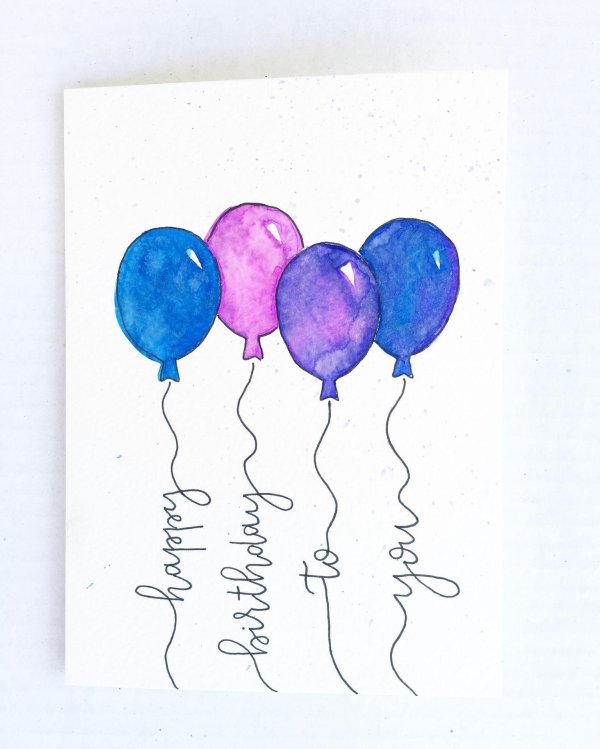 happy
birthday
to
you